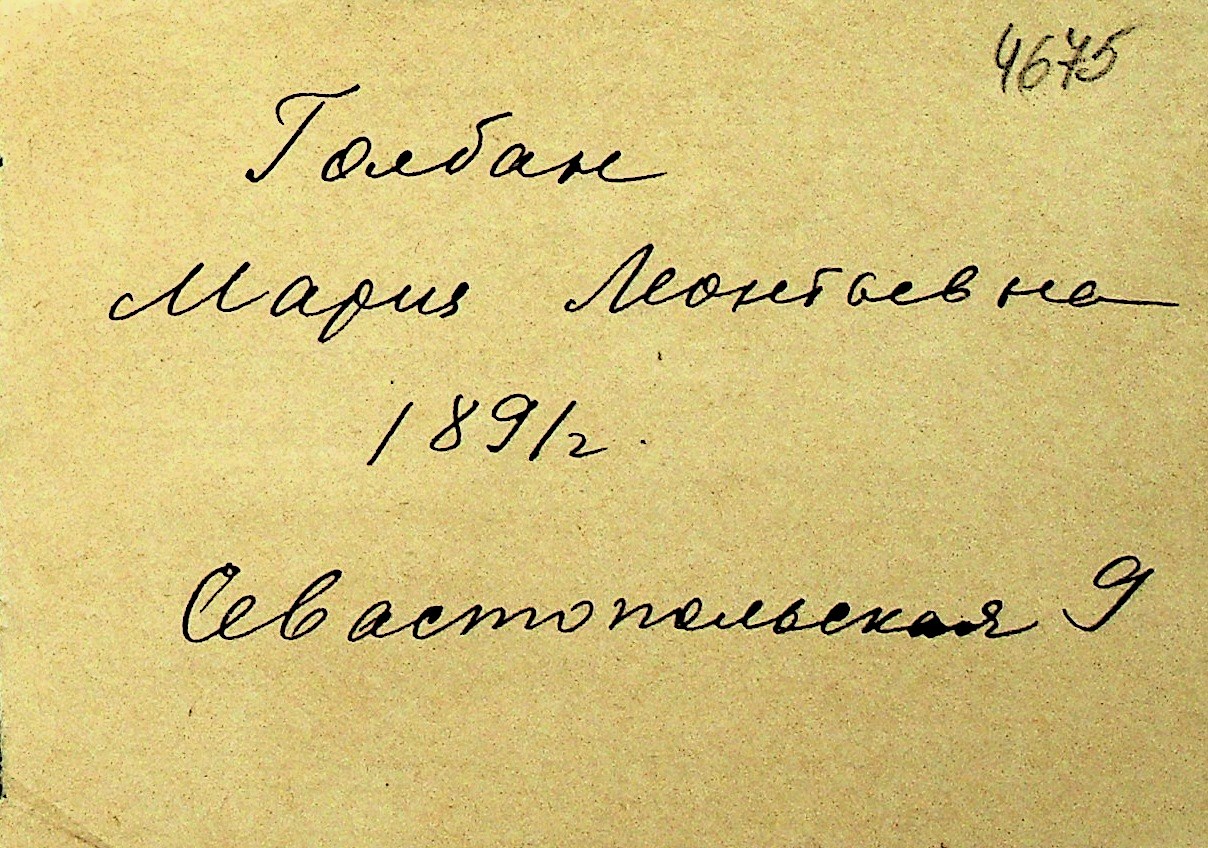 4675
Голбан
Мария Леонтьевна
1891г.
Севастопольская 9